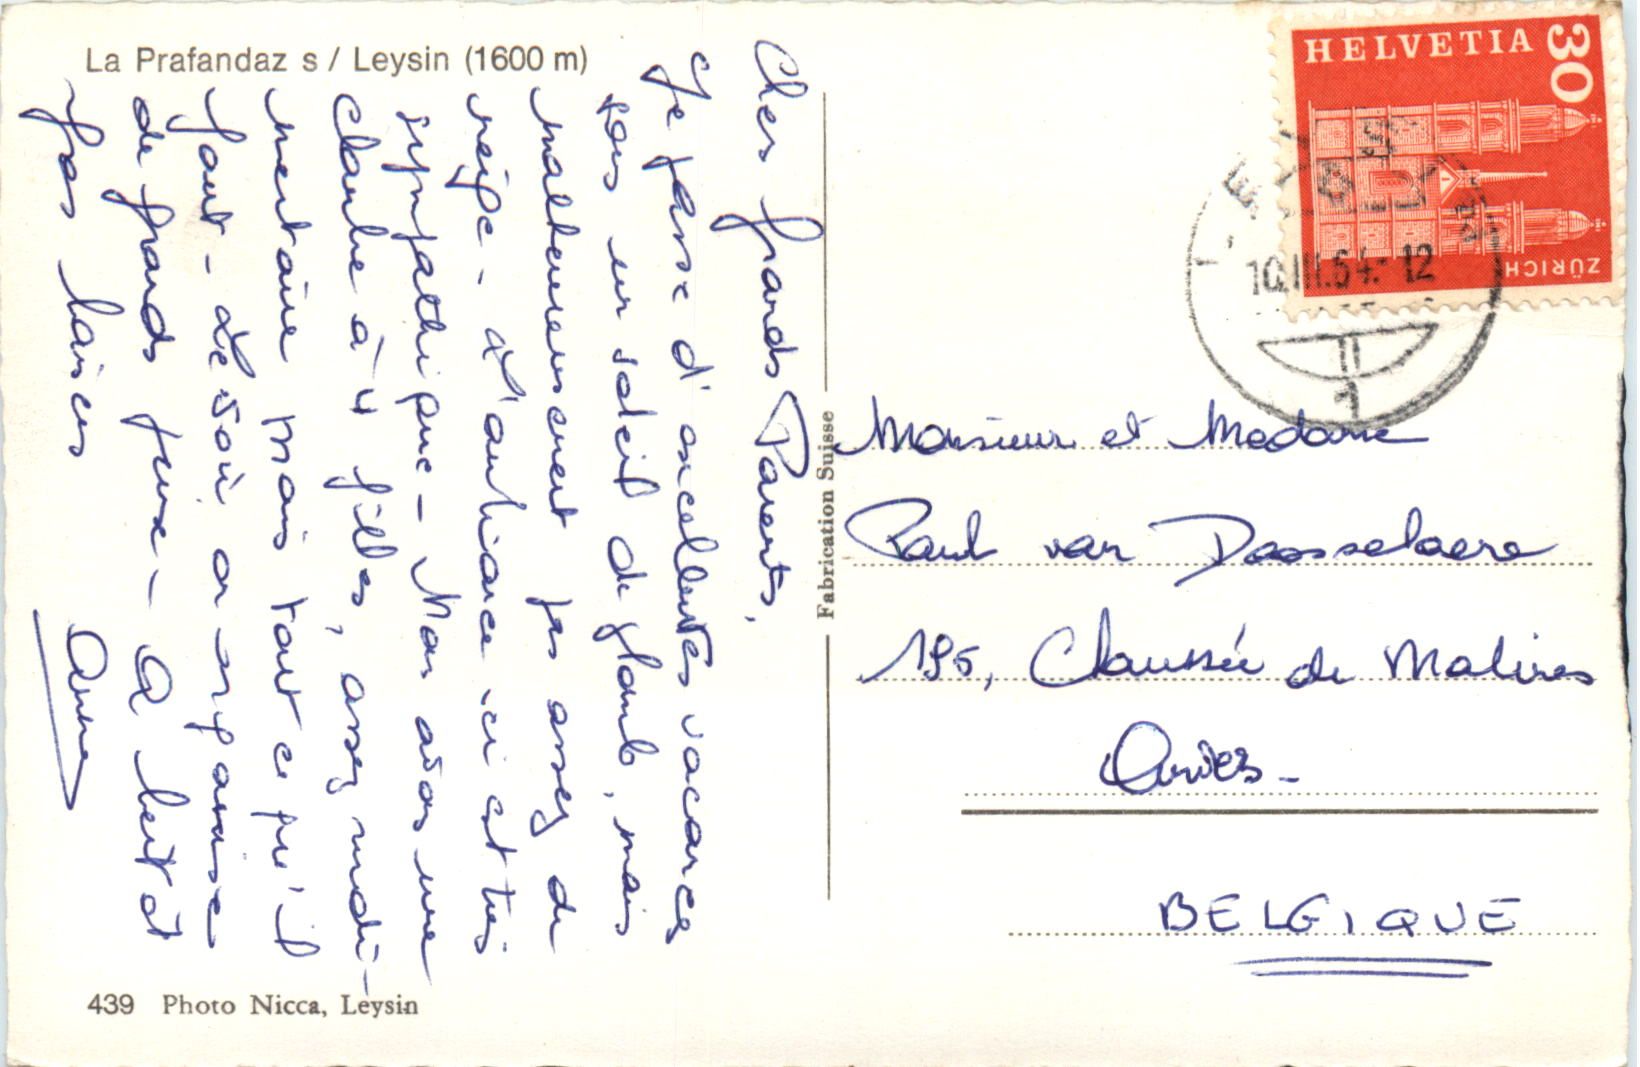 La Prafandaz s / Leysin (1600 m)
Chers grands Parents,
Je passe d'excellentes vacances
sous un soleil de plomb, mais
malheureusement pas assez de
neige - L'ambiance ici est très
sympathique - Nous avons une
chambre à 4 filles, assez rudi-
mentaire mais tout ce qu'il
faut - Le soir on organise
de grands jeux - A bientôt
Gros baisers
Anne
439 Photo Nicca, Leysin
Fabrication Suisse
HELVETIA 30
ZÜRICH
10.III.64.-12
1
Monsieur et Madame
Paul van Dosselaere
195, Chaussée de Malines
Anvers -
BELGIQUE